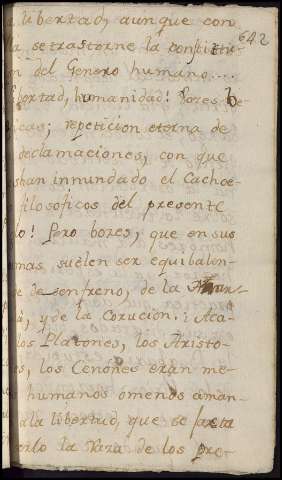 642
a libertad, aunque con
la se trastorne la constitu-
on del Genero humano....
ibertad, humanidad! Vozes be-
icas; repeticion eterna de
declamaciones, con que
shan inmundado el
filosoficos del presente
lo! Pero bozes, que en sus
mas, suelen ser equibalen-
e desenfreno, de la
a, y de la Corucion.: Aca-
los Platones, los Aristo-
es, los Cenones eran me-
humanos ó menos aman-
a la libertad, que se
la Vara de los pre-